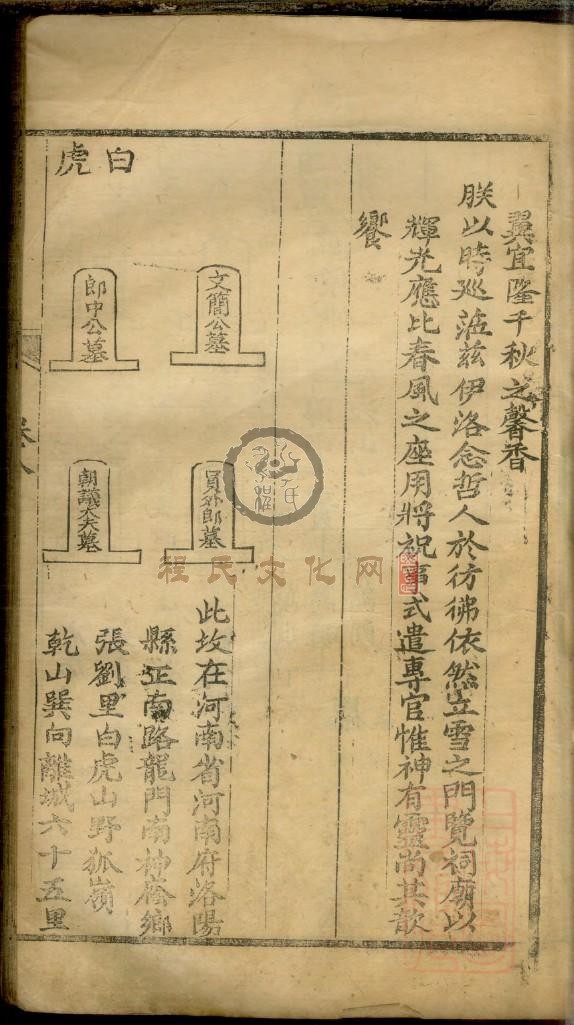 翼宜隆千秋之馨香
朕以時巡蒞茲伊洛念哲人於彷彿依然立雪之門覽祠廟以
輝光應比春風之座用將祝事式遣專官惟神有靈尚其歆
饗
白虎
文簡公墓
郎中公墓
員外郎墓
朝議大夫墓
此坟在河南省河南府洛陽
縣正南路龍門南神蔭鄉
張劉里白虎山野狐嶺
乾山巽向離城六十五里
程氏文化网